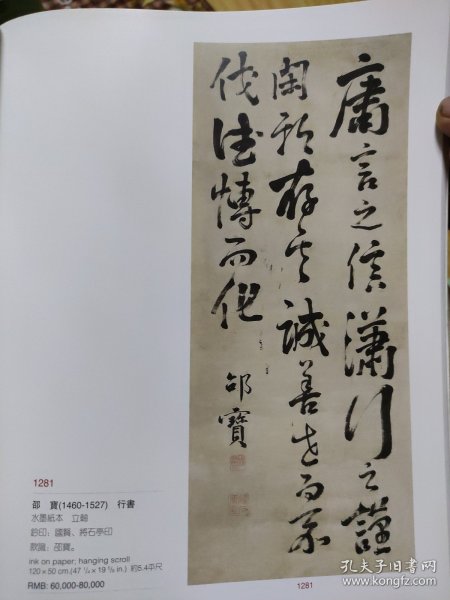 庸言之信行之謹
閑邪存其誠善世而不
伐德博而化
邵寶
1281
邵 寶(1460-1527) 行書
水墨紙本 立軸
鈐印：國賢、將石亭印
款識：邵寶。
ink on paper, hanging scroll
120×50 cm.(47 1/4×19 5/8 in.) 約5.4平尺
RMB: 60,000-80,000
1281
孔夫子旧书网